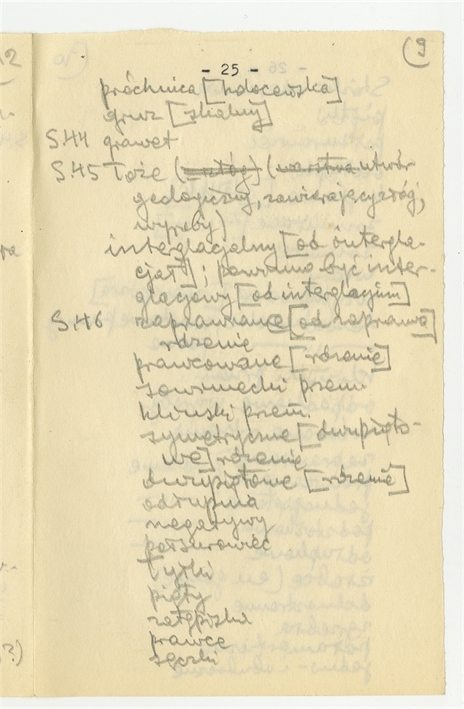 9
- 25 -
próchnica [holoceńska]
gruz [skalny]
S.44 grawet
S.45 Łoże (warstwa utwór
geologiczny, zawierający złóg,
wyroby)
interglacjalny [od intergla-
cjał]; powinno być inter-
glacjowy [od interglacjum]
S.46 zaprawiane [od zaprawa]
rdzenie
prawcowane [rdzenie]
zawiniecki przem
kliński przem.
symetryczne [dwupięto-
we] rdzenie
dwupiętowe [rdzenie]
odłupnia
negatywy
półsurowiec
Tylki
pięty
zatępiska
prawce
sęczki